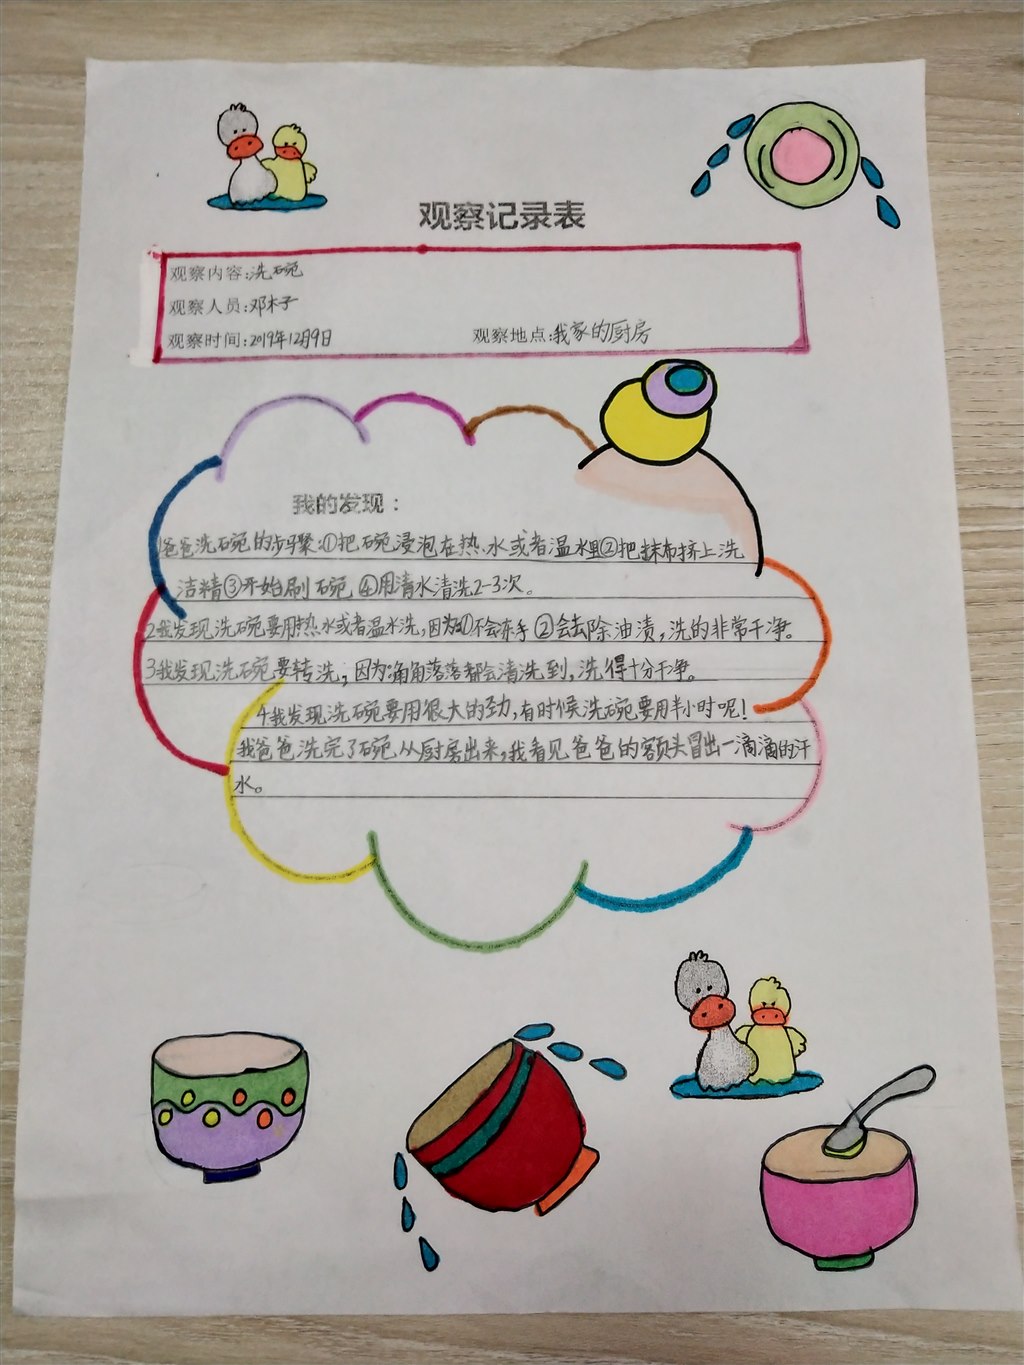 观察记录表
观察内容:洗碗
观察人员:邓木子
观察时间:2019年12月9日 观察地点:我家的厨房
我的发现：
1爸爸洗碗的步骤:①把碗浸泡在热水或者温水里②把抹布挤上洗
洁精③开始刷碗 ④用清水清洗2-3次。
2我发现洗碗要用热水或者温水洗,因为①不会冻手②会去除油渍,洗的非常干净。
3我发现洗碗要转洗,因为角角落落都会清洗到,洗得十分干净。
4我发现洗碗要用很大的劲,有时候洗碗要用半小时呢!
我爸爸洗完了碗从厨房出来,我看见爸爸的额头冒出一滴滴的汗
水。